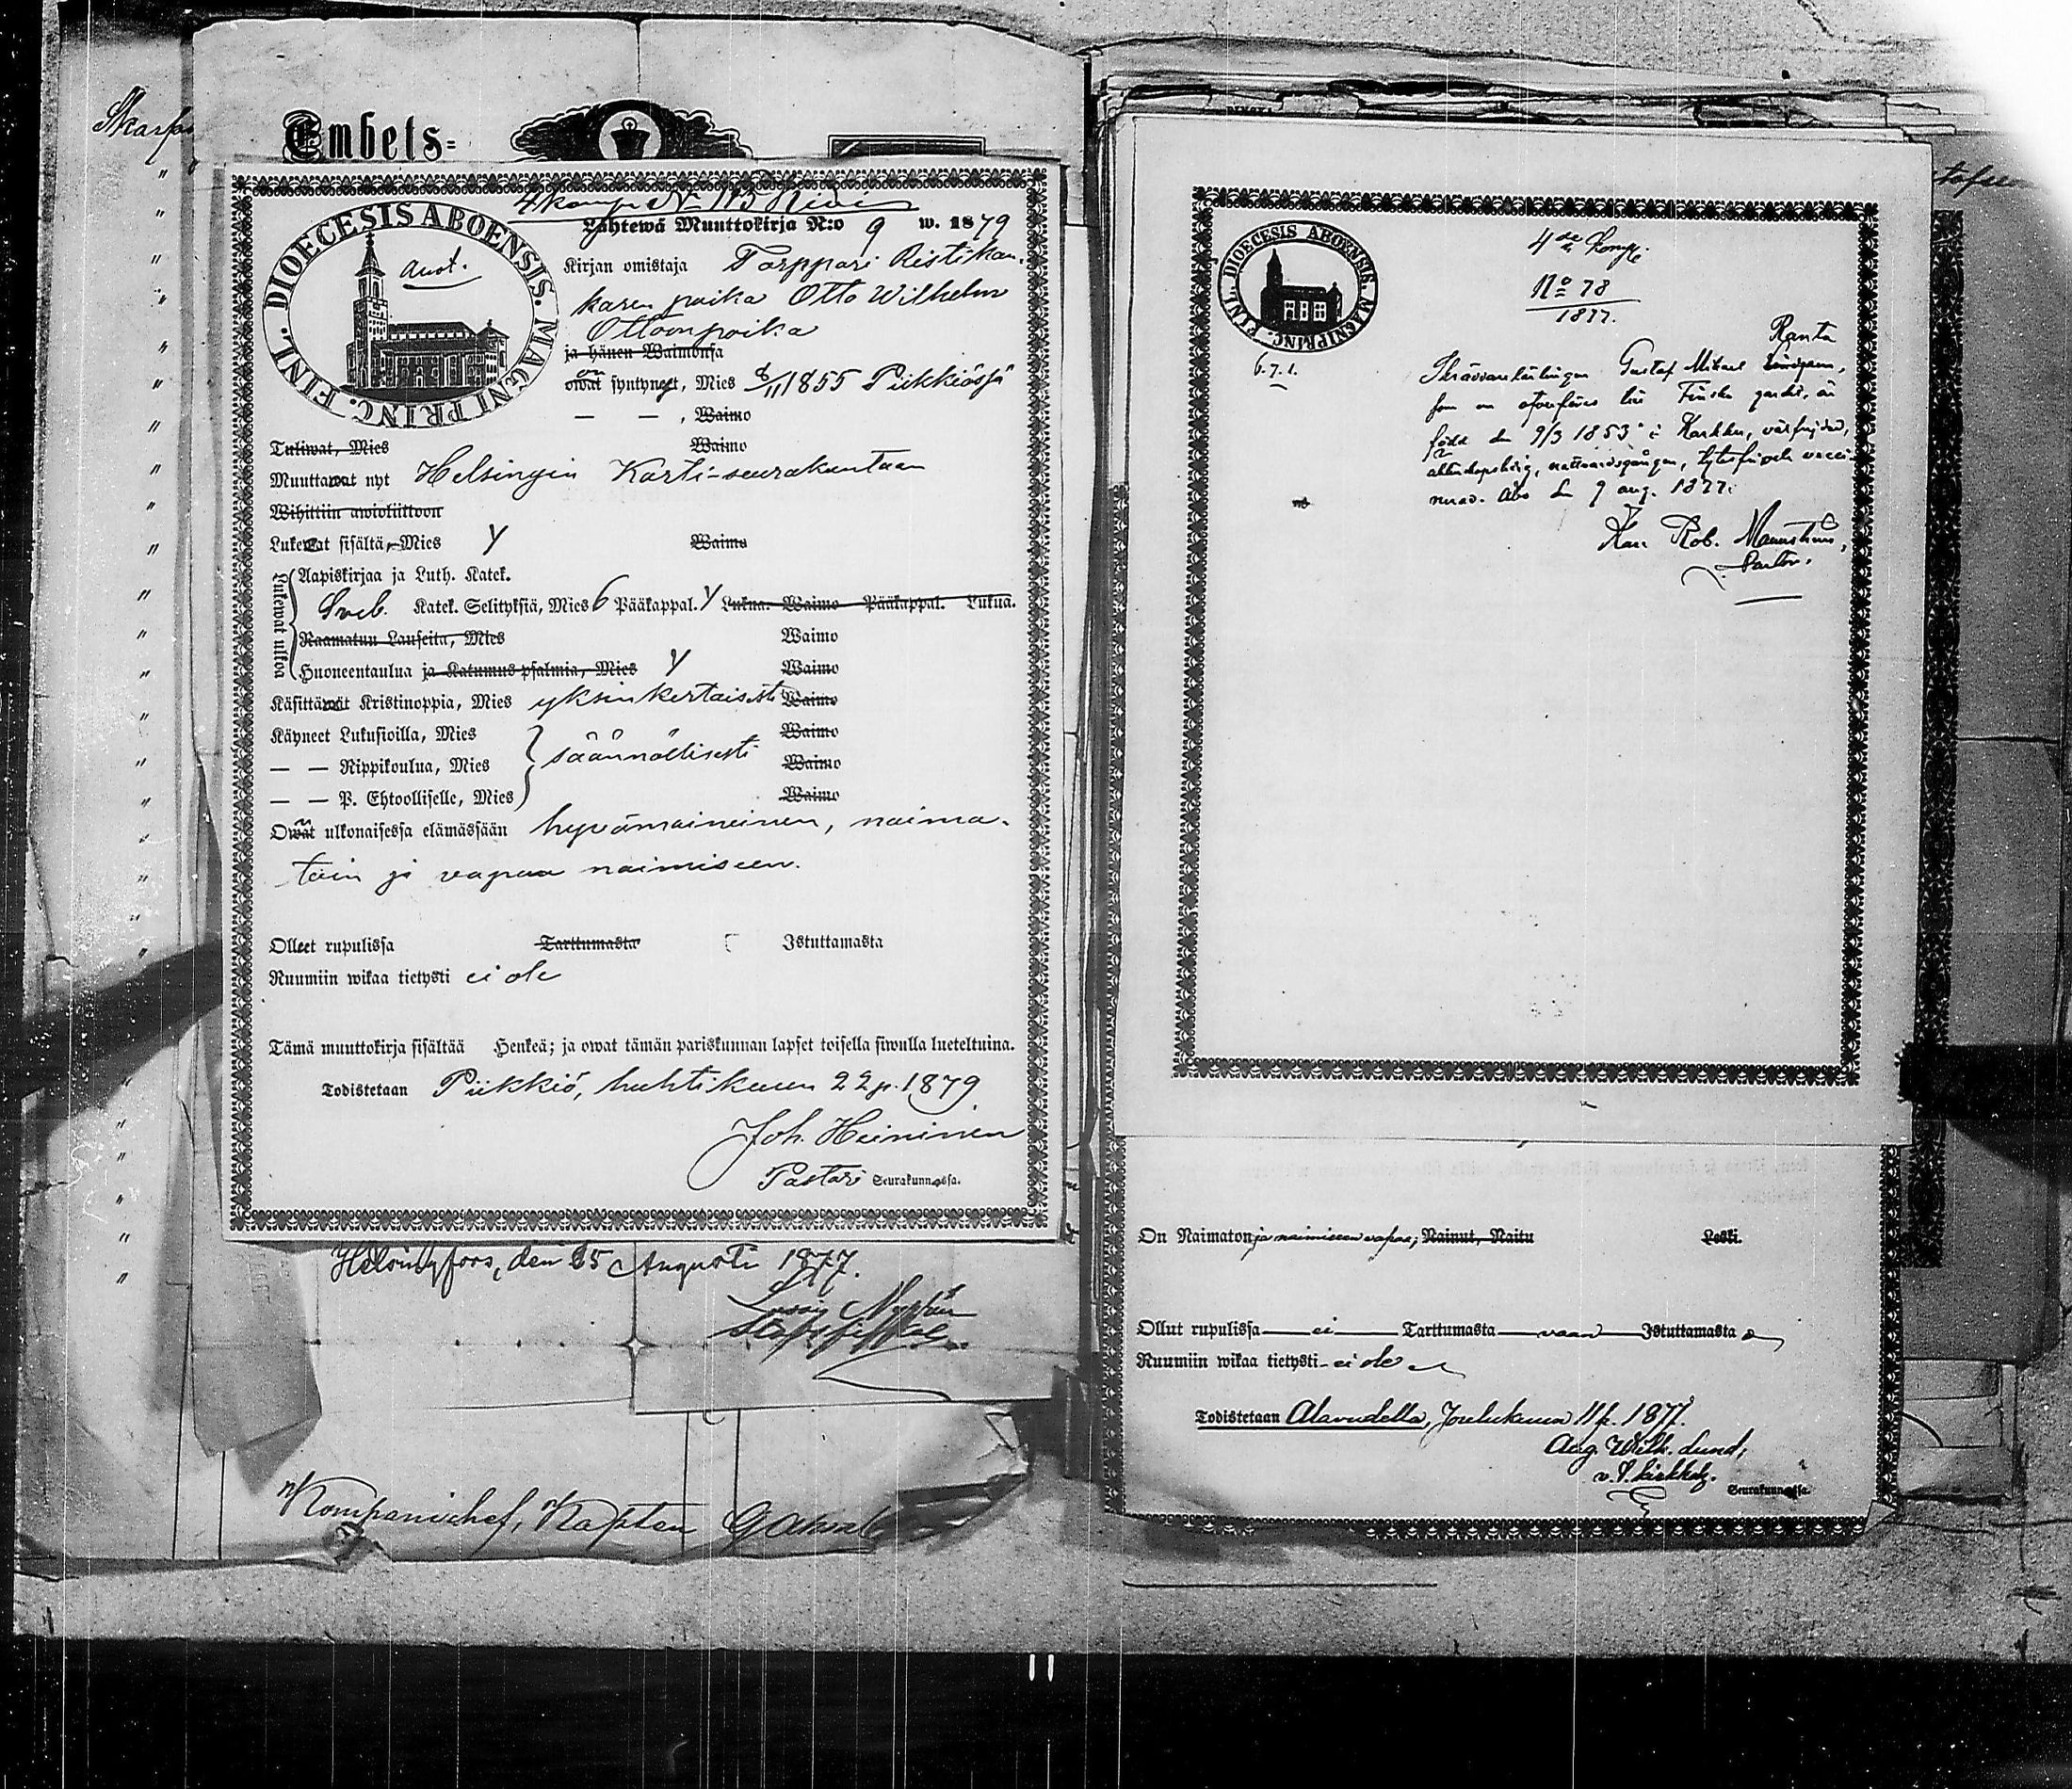 Skarps
Embets=
4 komp. No 113
Lähtewä Muuttokirja N:o 9 w. 1879
DIOECESIS ABOENSIS. MAGNI PRINC. FINL.
Kirjan omistaja Torppari Ristikan-
karen poika Otto Wilhelm
Ottonpoika
ja hänen Waimonsa
owat syntyneet, Mies 8/11 1855 Piikkiössä
— — , Waimo
Tuliwat, Mies Waimo
Muuttawat nyt Helsingin Kaarti-seurakuntaan
Wihittiin awioliittoon
Lukewat sisältä, Mies Y Waimo
Lukewat ulkoa
Aapiskirjaa ja Luth. Katek.
Sveb. Katek. Selityksiä, Mies 6 Pääkappal. Y Lukua. Waimo Pääkappal. Lukua.
Raamatun Lauseita, Mies Waimo
Huoneentaulua ja Katumus-psalmia, Mies Y Waimo
Käsittäwät Kristinoppia, Mies yksinkertaisesti Waimo
Käyneet Lukusioilla, Mies Waimo
— — Rippikoulua, Mies säännöllisesti Waimo
— — P. Ehtoolliselle, Mies Waimo
Owat ulkonaisessa elämässään hyvämaineinen, naima-
toin ja vapaa naimiseen.
Olleet rupulissa Tarttumasta Istuttamasta
Ruumiin wikaa tietysti ei ole
Tämä muuttokirja sisältää Henkeä; ja owat tämän pariskunnan lapset toisella siwulla lueteltuina.
Todistetaan Piikkiö, huhtikuun 22 p. 1879
Joh. Heininen
Pastori Seurakunnassa.
Helsingfors, den 15 Augusti 1877.
Kompanichef, Kapten
DIOECESIS ABOENSIS MAGNI PRINC. FINL.
4de Komp.
No 78
1877.
6.7.1.
Ranta
Skräddarelärlingen Gustaf Mikael
som en  Finska gardet, är
född den 9/3 1853 i Karkku, välfrejdad,
nattvardsgången, vacci-
nerad. Åbo den 9 aug. 1877.
Karl Rob.
Pastor.
On Naimaton ja naimiseen vapaa; Nainut, Naitu Leski.
Ollut rupulissa ei Tarttumasta vaan Istuttamasta
Ruumiin wikaa tietysti ei ole
Todistetaan Alavudella, Joulukuun 11 p. 1877.
Aug. Wilh. Lund,
v. t. kirkkoh.
Seurakunnassa.